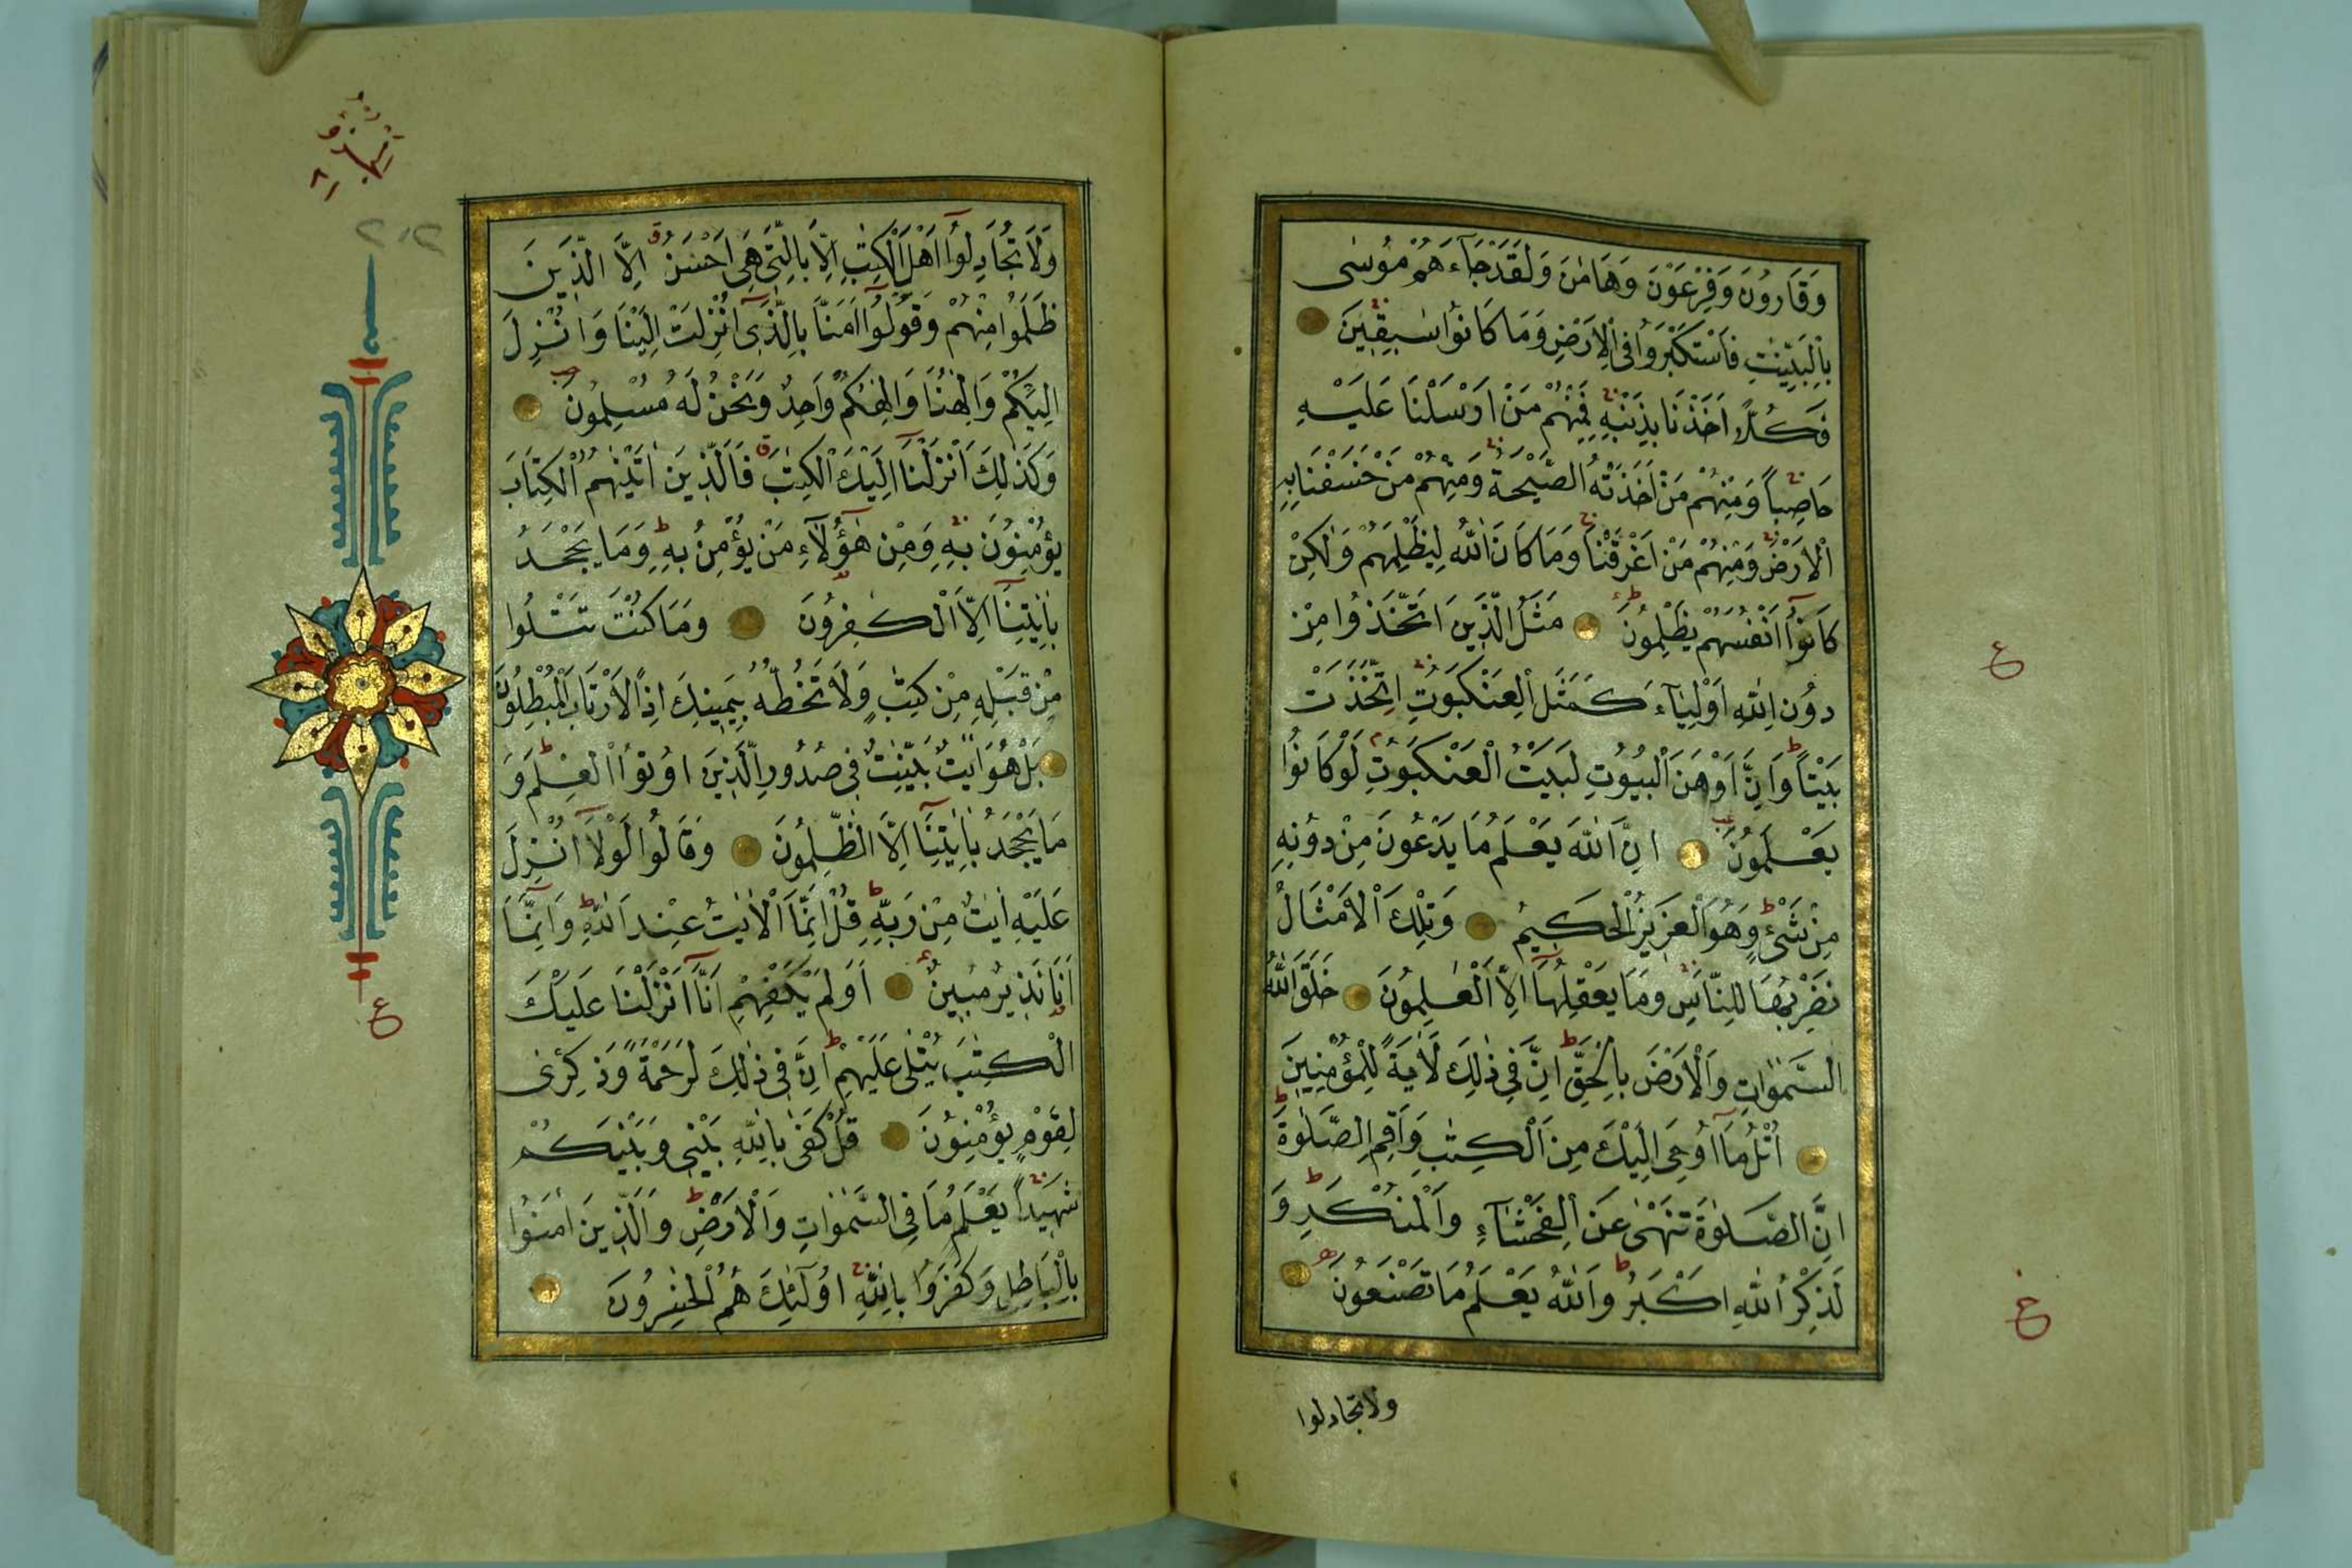 وَقَارُونَ وَفِرْعَوْنَ وَهَامٰنَ وَلَقَدْ جَاءَهُمْ مُوسٰى
بِالْبَيِّنٰتِ فَاسْتَكْبَرُوا فِى الْاَرْضِ وَمَا كَانُوا سٰبِقِينَ
فَكُلًّا اَخَذْنَا بِذَنْبِهِ فَمِنْهُمْ مَنْ اَرْسَلْنَا عَلَيْهِ
حَاصِبًا وَمِنْهُمْ مَنْ اَخَذَتْهُ الصَّيْحَةُ وَمِنْهُمْ مَنْ خَسَفْنَا بِهِ
الْاَرْضَ وَمِنْهُمْ مَنْ اَغْرَقْنَا وَمَا كَانَ اللّٰهُ لِيَظْلِمَهُمْ وَلٰكِنْ
كَانُوا اَنْفُسَهُمْ يَظْلِمُونَ مَثَلُ الَّذِينَ اتَّخَذُوا مِنْ
دُونِ اللّٰهِ اَوْلِيَاءَ كَمَثَلِ الْعَنْكَبُوتِ اِتَّخَذَتْ
بَيْتًا وَاِنَّ اَوْهَنَ الْبُيُوتِ لَبَيْتُ الْعَنْكَبُوتِ لَوْ كَانُوا
يَعْلَمُونَ اِنَّ اللّٰهَ يَعْلَمُ مَا يَدْعُونَ مِنْ دُونِهِ
مِنْ شَىْءٍ وَهُوَ الْعَزِيزُ الْحَكِيمُ وَتِلْكَ الْاَمْثَالُ
نَضْرِبُهَا لِلنَّاسِ وَمَا يَعْقِلُهَا اِلَّا الْعٰلِمُونَ خَلَقَ اللّٰهُ
السَّمٰوٰاتِ وَالْاَرْضَ بِالْحَقِّ اِنَّ فِى ذٰلِكَ لَاٰيَةً لِلْمُؤْمِنِينَ
اُتْلُ مَا اُوحِىَ اِلَيْكَ مِنَ الْكِتٰبِ وَاَقِمِ الصَّلٰوةَ
اِنَّ الصَّلٰوةَ تَنْهٰى عَنِ الْفَحْشَاءِ وَالْمُنْكَرِ وَ
لَذِكْرُ اللّٰهِ اَكْبَرُ وَاللّٰهُ يَعْلَمُ مَا تَصْنَعُونَ
ولا تجادلوا
ع
ع
وَلَا تُجَادِلُوا اَهْلَ الْكِتٰبِ اِلَّا بِالَّتِى هِىَ اَحْسَنُ اِلَّا الَّذِينَ
ظَلَمُوا مِنْهُمْ وَقُولُوا اٰمَنَّا بِالَّذِى اُنْزِلَتْ اِلَيْنَا وَاُنْزِلَ
اِلَيْكُمْ وَاِلٰهُنَا وَاِلٰهُكُمْ وَاحِدٌ وَنَحْنُ لَهُ مُسْلِمُونَ
وَكَذٰلِكَ اَنْزَلْنَا اِلَيْكَ الْكِتٰبَ فَالَّذِينَ اٰتَيْنٰهُمُ الْكِتَابَ
يُؤْمِنُونَ بِهِ وَمِنْ هٰؤُلَاءِ مَنْ يُؤْمِنُ بِهِ وَمَا يَجْحَدُ
بِاٰيٰتِنَا اِلَّا الْكٰفِرُونَ وَمَا كُنْتَ تَتْلُوا
مِنْ قَبْلِهِ مِنْ كِتٰبٍ وَلَا تَخُطُّهُ بِيَمِينِكَ اِذًا لَارْتَابَ الْمُبْطِلُونَ
بَلْ هُوَ اٰيٰتٌ بَيِّنٰتٌ فِى صُدُورِ الَّذِينَ اُوتُوا الْعِلْمَ وَ
مَا يَجْحَدُ بِاٰيٰتِنَا اِلَّا الظّٰلِمُونَ وَقَالُوا لَوْلَا اُنْزِلَ
عَلَيْهِ اٰيٰتٌ مِنْ رَبِّهِ قُلْ اِنَّمَا الْاٰيٰتُ عِنْدَ اللّٰهِ وَاِنَّمَا
اَنَا نَذِيرٌ مُبِينٌ اَوَلَمْ يَكْفِهِمْ اَنَّا اَنْزَلْنَا عَلَيْكَ
الْكِتٰبَ يُتْلٰى عَلَيْهِمْ اِنَّ فِى ذٰلِكَ لَرَحْمَةً وَذِكْرٰى
لِقَوْمٍ يُؤْمِنُونَ قُلْ كَفٰى بِاللّٰهِ بَيْنِى وَبَيْنَكُمْ
شَهِيدًا يَعْلَمُ مَا فِى السَّمٰوَاتِ وَالْاَرْضِ وَالَّذِينَ اٰمَنُوا
بِالْبَاطِلِ وَكَفَرُوا بِاللّٰهِ اُولٰئِكَ هُمُ الْخٰسِرُونَ
ع